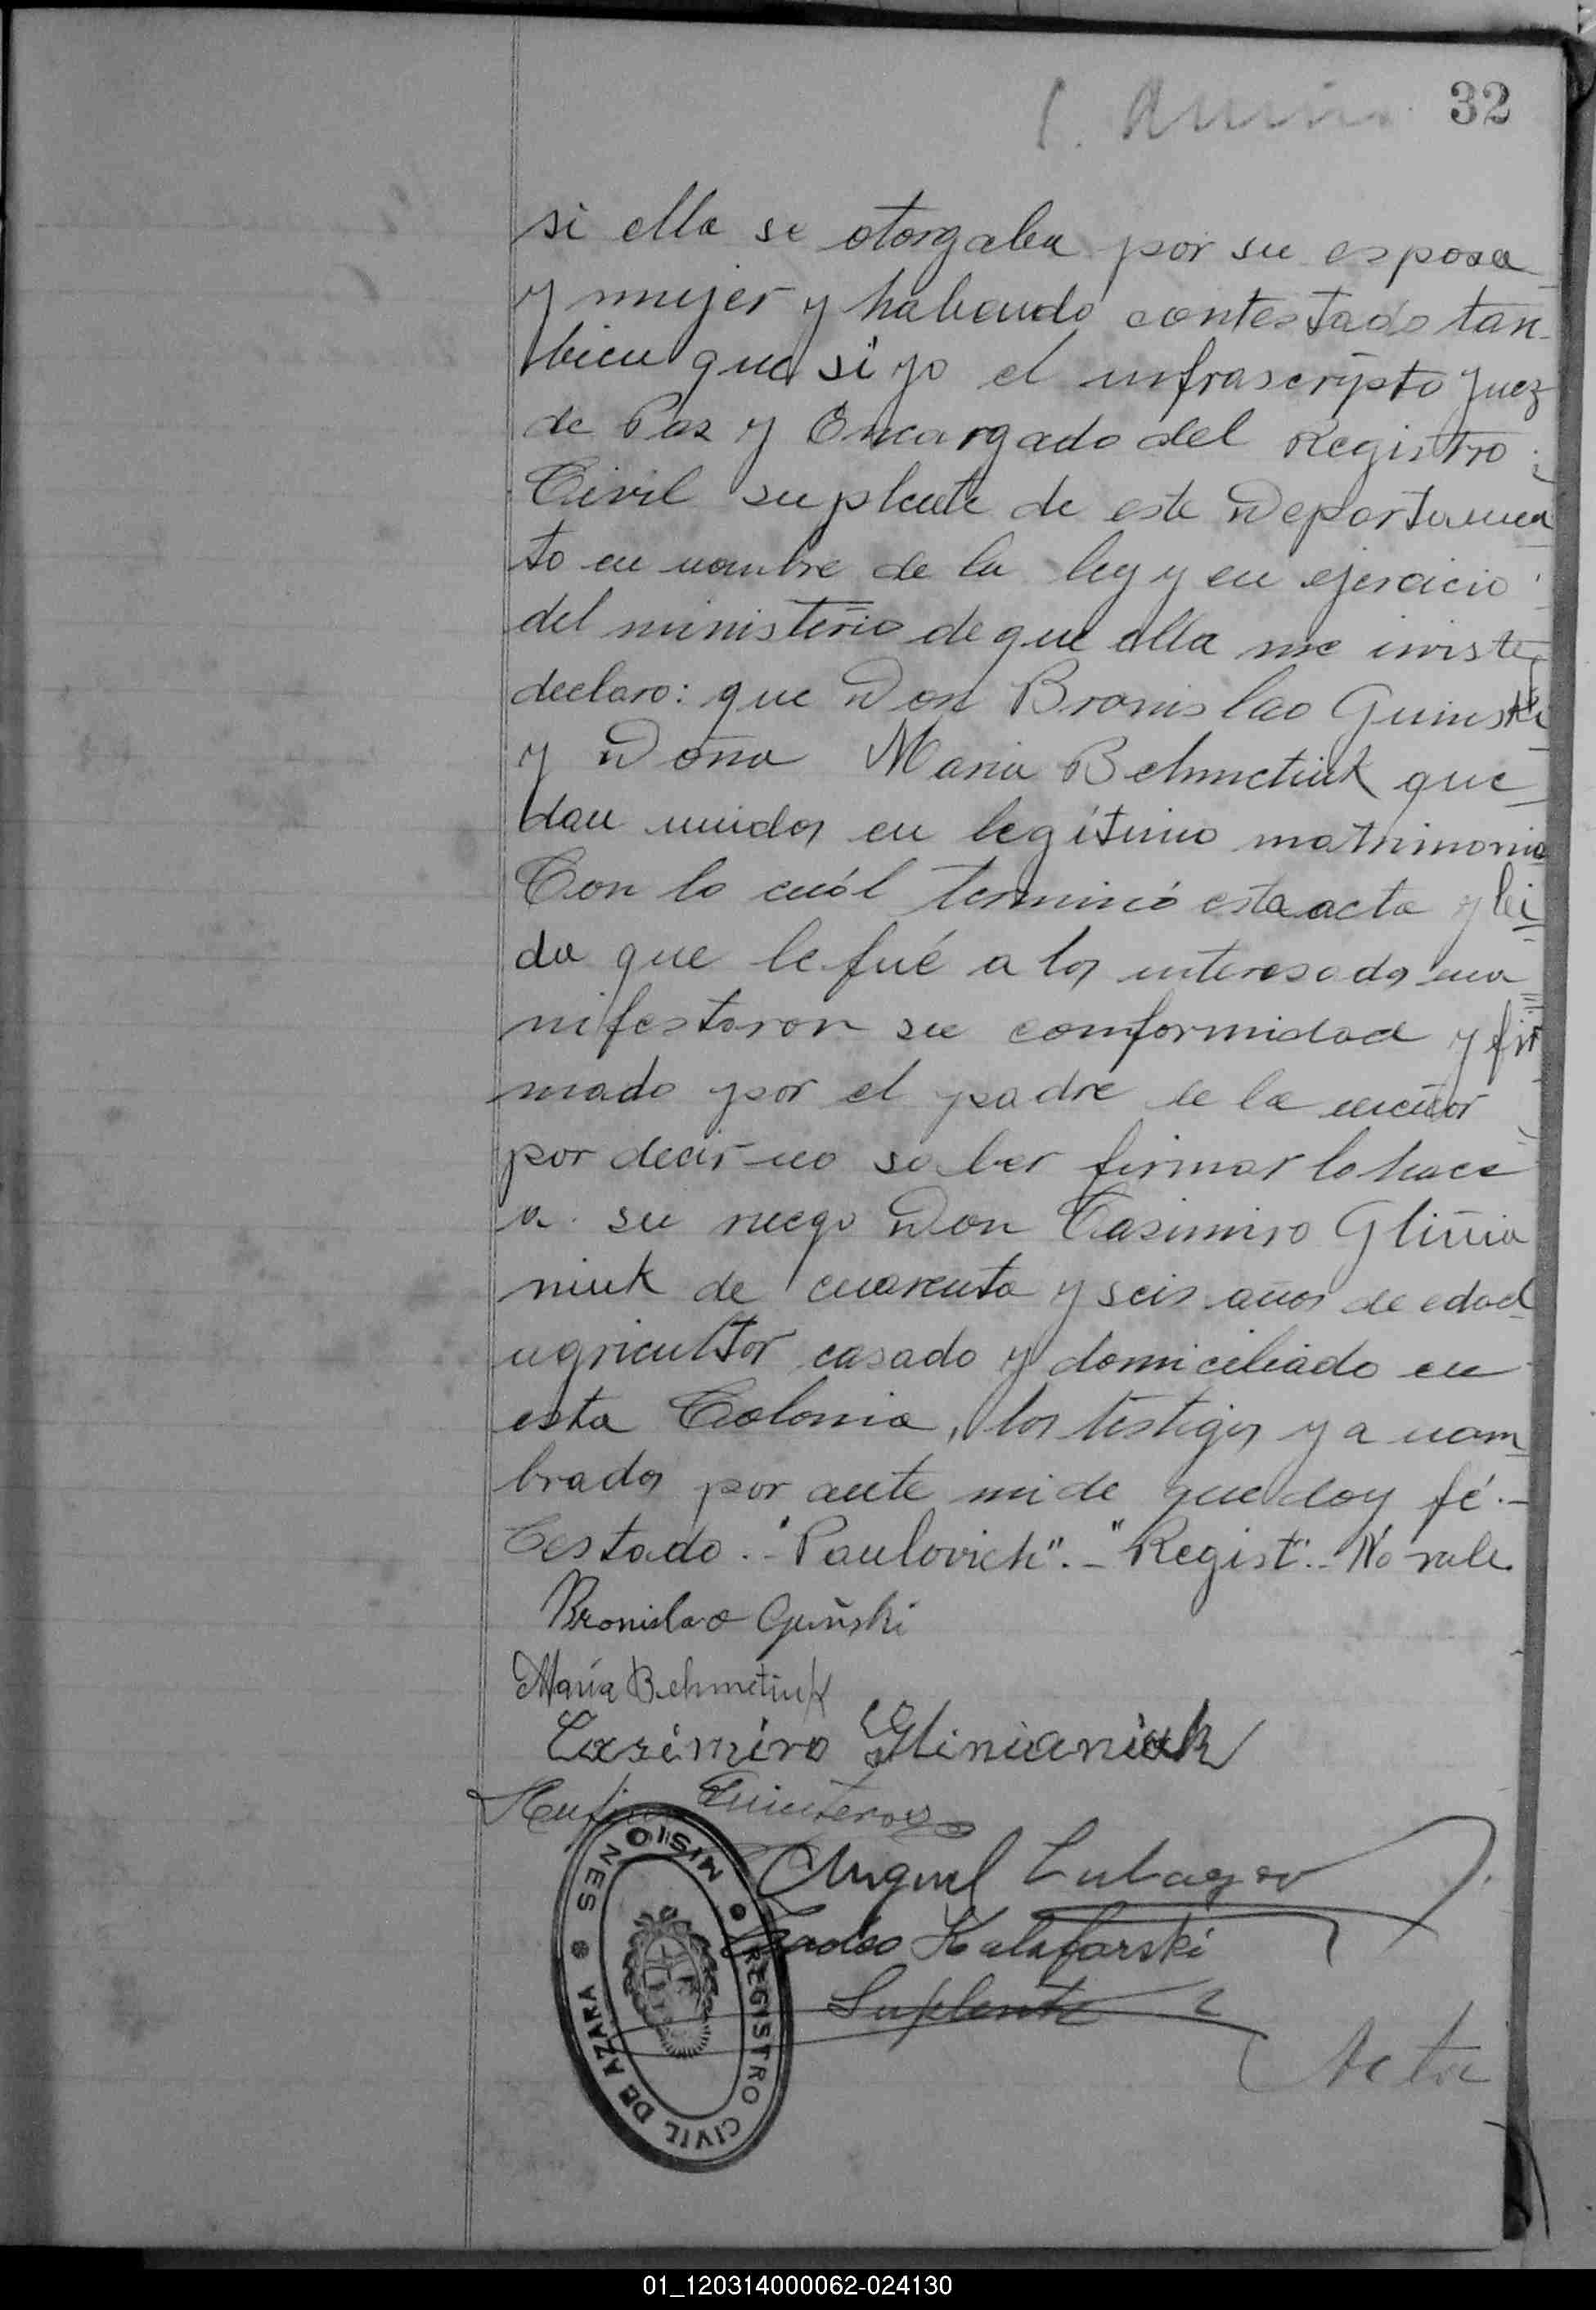 32
si ella se otorgaba por su esposa
y mujer y habiendo contestado tan-
bien que si yo el infrascripto Juez
de Paz y Encargado del Registro
Civil suplente de este Departamen
to en nombre de la ley y en ejercicio
del ministerio de que ella me inviste
declaro: que Don Bronislao Guinski
y Doña Maria Behmetiuk que
dan unidos en legítimo matrimonio
Con lo cuál terminó esta acta y lei
da que le fué a los interesados ma
nifestaron su conformidad y fir
mado por el padre de la menor
por decir no saber firmar lo hace
a su ruego Don Casimiro Gliñia
niuk de cuarenta y seis años de edad
agricultor casado y domiciliado en
esta Colonia, los testigos ya nom
brados por ante mi de que doy fé.-
Testado.- "Paulovich".- "Regist".- No vale
Bronislao Guiñski
María Behmetiuk
Casimiro Glinianiuk
Quinteros
Miguel
Tadeo Kalafarski
Suplente
Acta
MISIONES
REGISTRO CIVIL DE AZARA
01_120314000062-024130